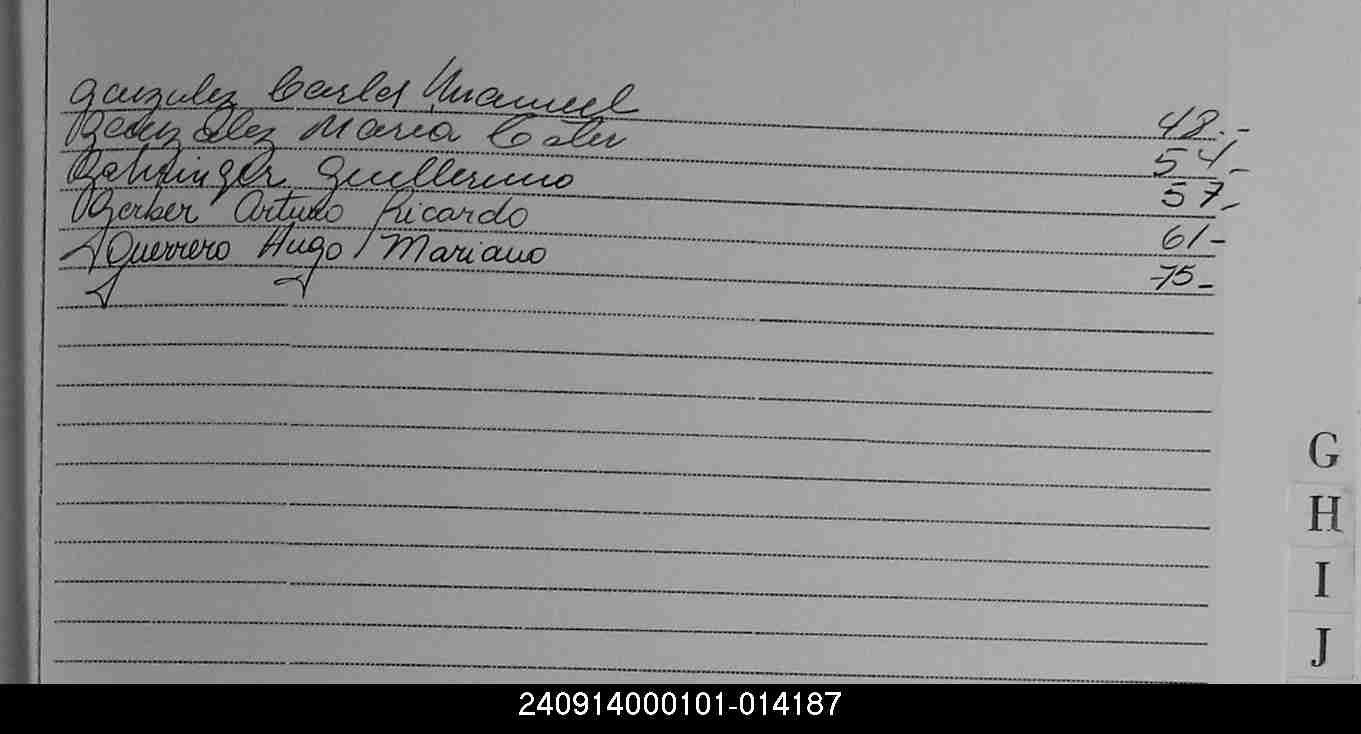 Gonzalez Carlos Manuel 48.-
Gonzalez Maria Ester 54.-
Gehringer Guillermo 57.-
Gerber Arturo Ricardo 61-
Guerrero Hugo Mariano 75-
G
H
I
J
240914000101-014187